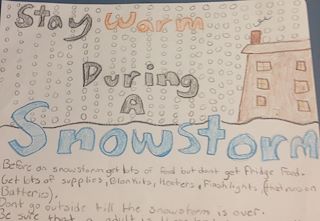 Stay Warm
During
A
Snowstorm
Before an snowstorm get lots of food but dont get fridge food.
Get lots of supplies, Blankits, Heaters, Flashlights, that runs on
Batteries).
Dont go outside till the snowstorm is over.
Be sure that a adult is